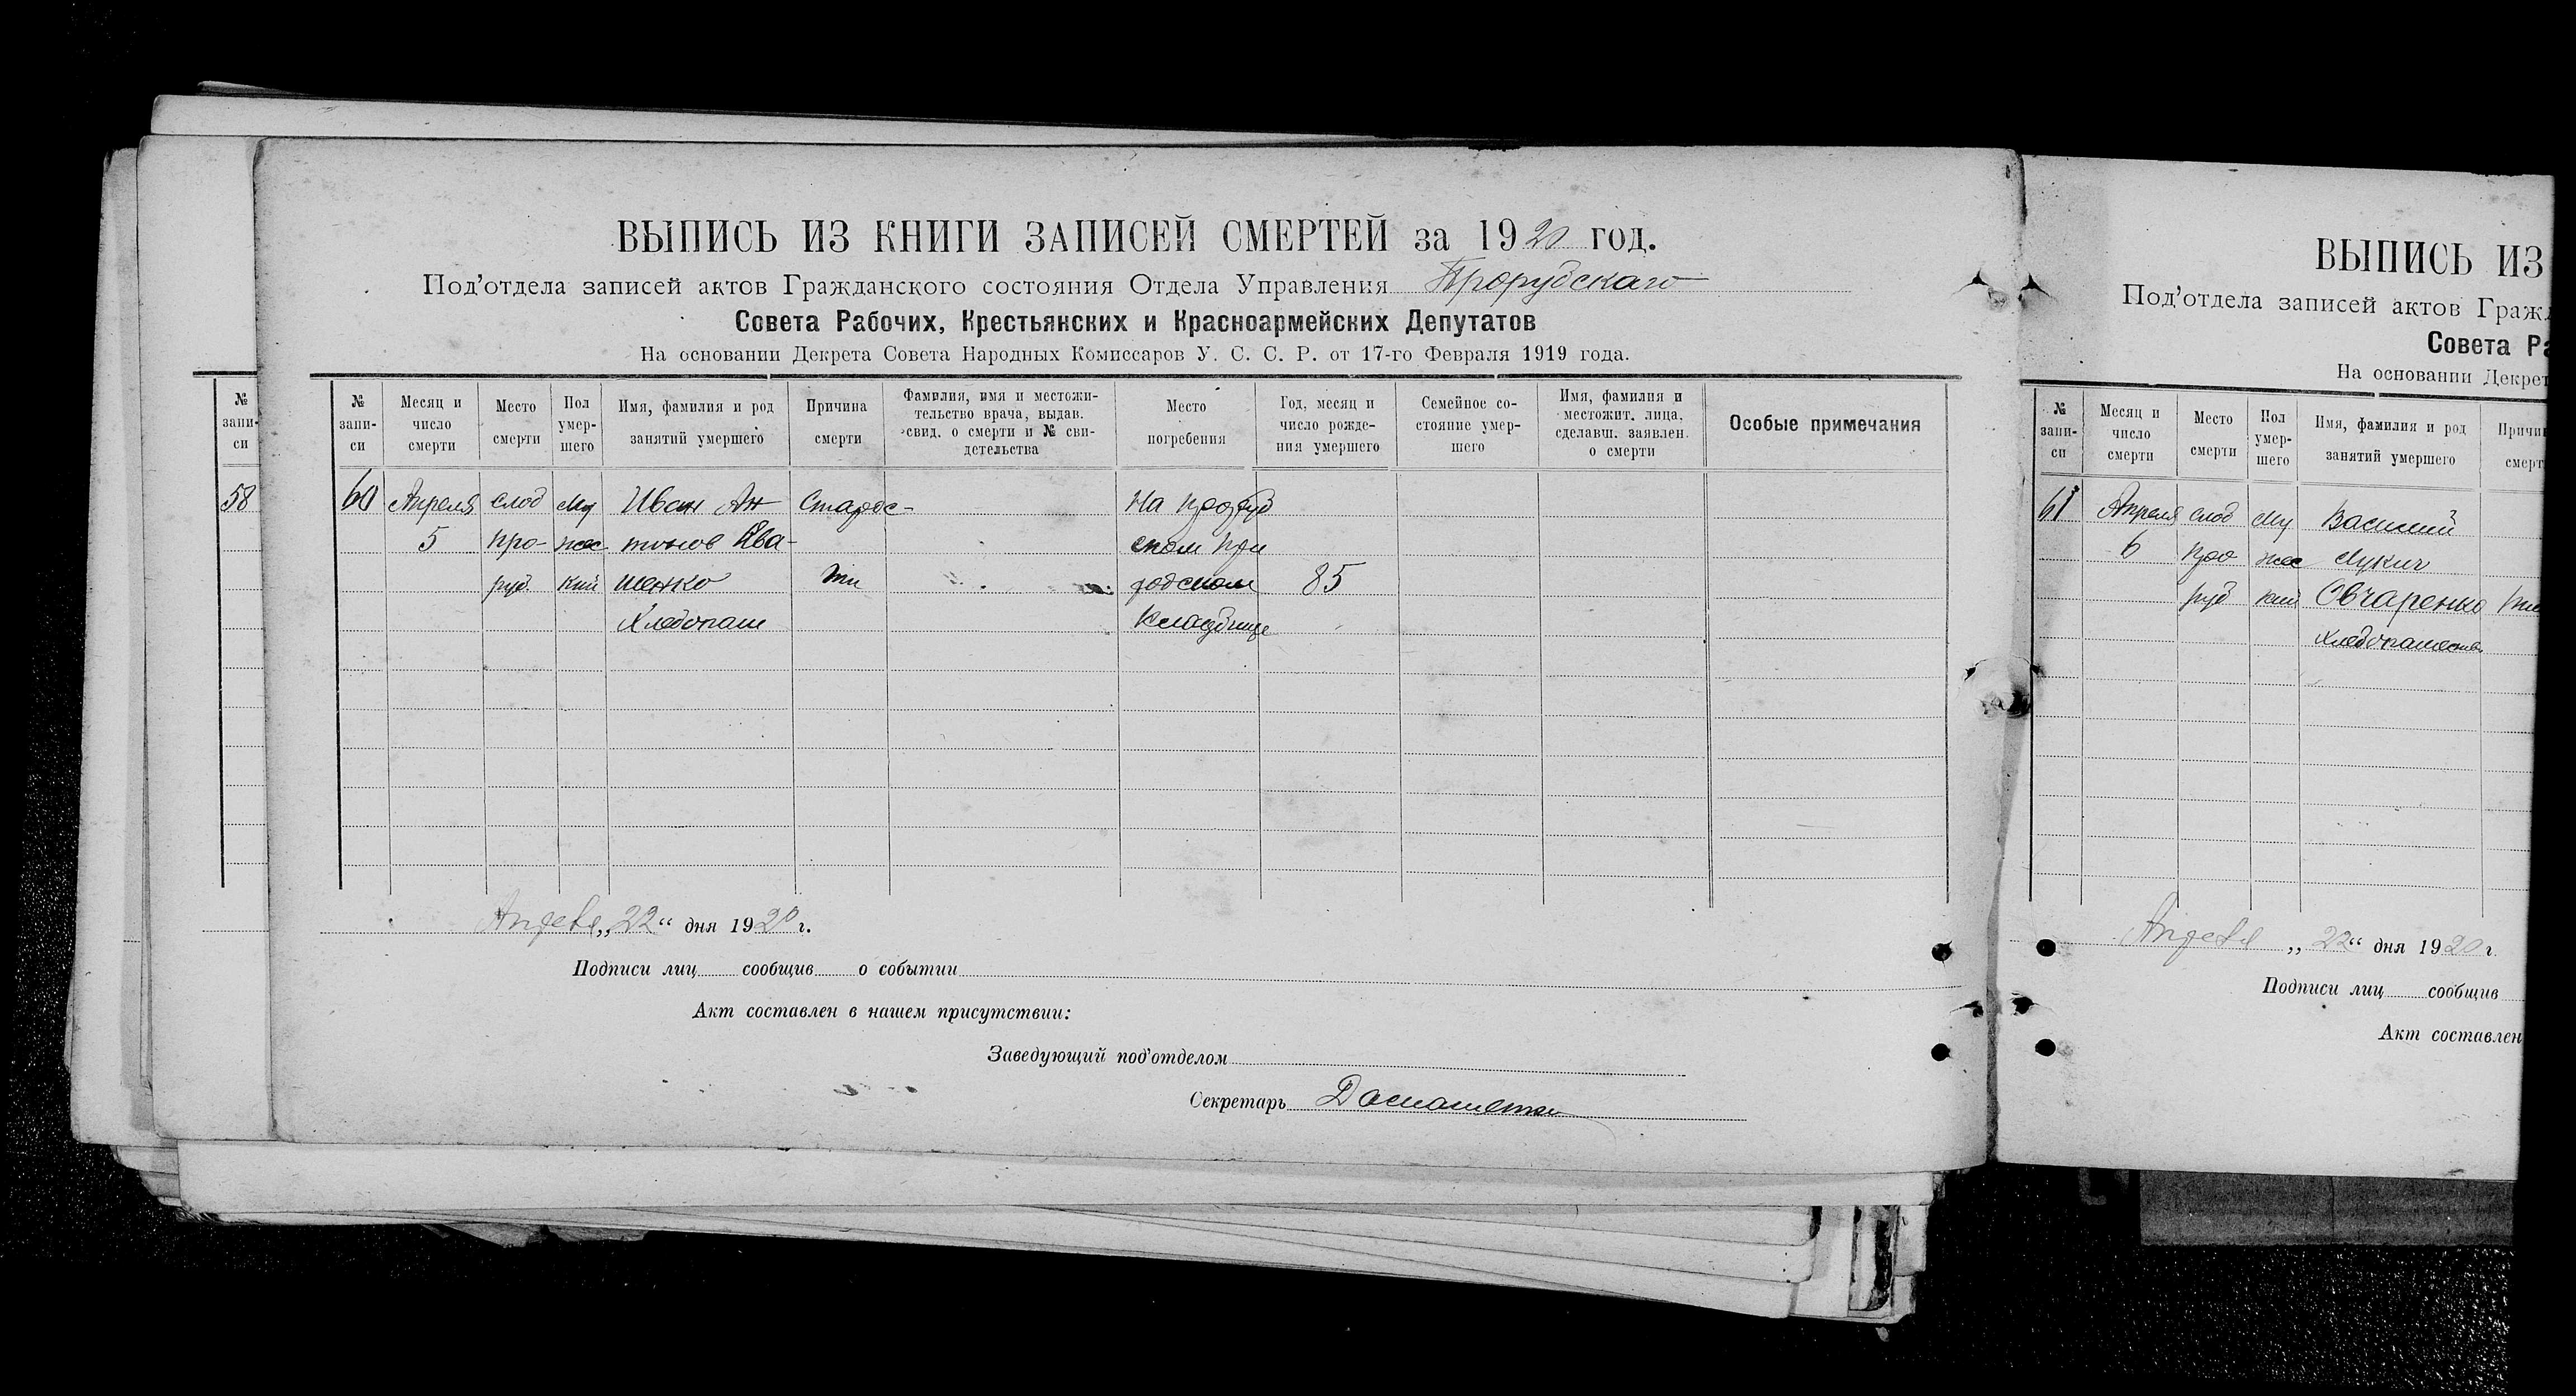 ВЫПИСЬ ИЗ КНИГИ ЗАПИСЕЙ СМЕРТЕЙ за 1920 год.
Под'отдела записей актов Гражданского состояния Отдела Управления Прорубскаго
Совета Рабочих, Крестьянских и Красноармейских Депутатов
На основании Декрета Совета Народных Комиссаров У. С. С. Р. от 17-го Февраля 1919 года.
№ запи-си
Месяц и число смерти
Место смерти
Пол умер-шего
Имя, фамилия и род занятий умершего
Причина смерти
Фамилия, имя и местожи-тельство врача, выдав. свид. о смерти и № сви-детельства
Место погребения
Год, месяц и число рожде-ния умершего
Семейное со-стояние умер-шего
Имя, фамилия и местожит. лица, сделавш. заявлен. о смерти
Особые примечания
60 Апреля слоб Му Иван Ан Старос- На проруб
5 про- жес тонов Ива- ском при
руб. кий щенко ти 85
Хлебопаш кладбище
Апреля „22“ дня 1920 г.
Подписи лиц сообщив о событии
Акт составлен в нашем присутствии:
Заведующий под'отделом
Секретарь
№ запи-си
58
ВЫПИСЬ ИЗ
Под'отдела записей актов Гражд
Совета Ра
На основании Декрет
№ запи-си
Месяц и число смерти
Место смерти
Пол умер-шего
Имя, фамилия и род занятий умершего
Причин смерт
61 Апреля слоб Му Василий
6 про жес Лукич
руб кий Овчаренко
Апреля „22“ дня 1920 г.
Подписи лиц сообщив
Акт составлен